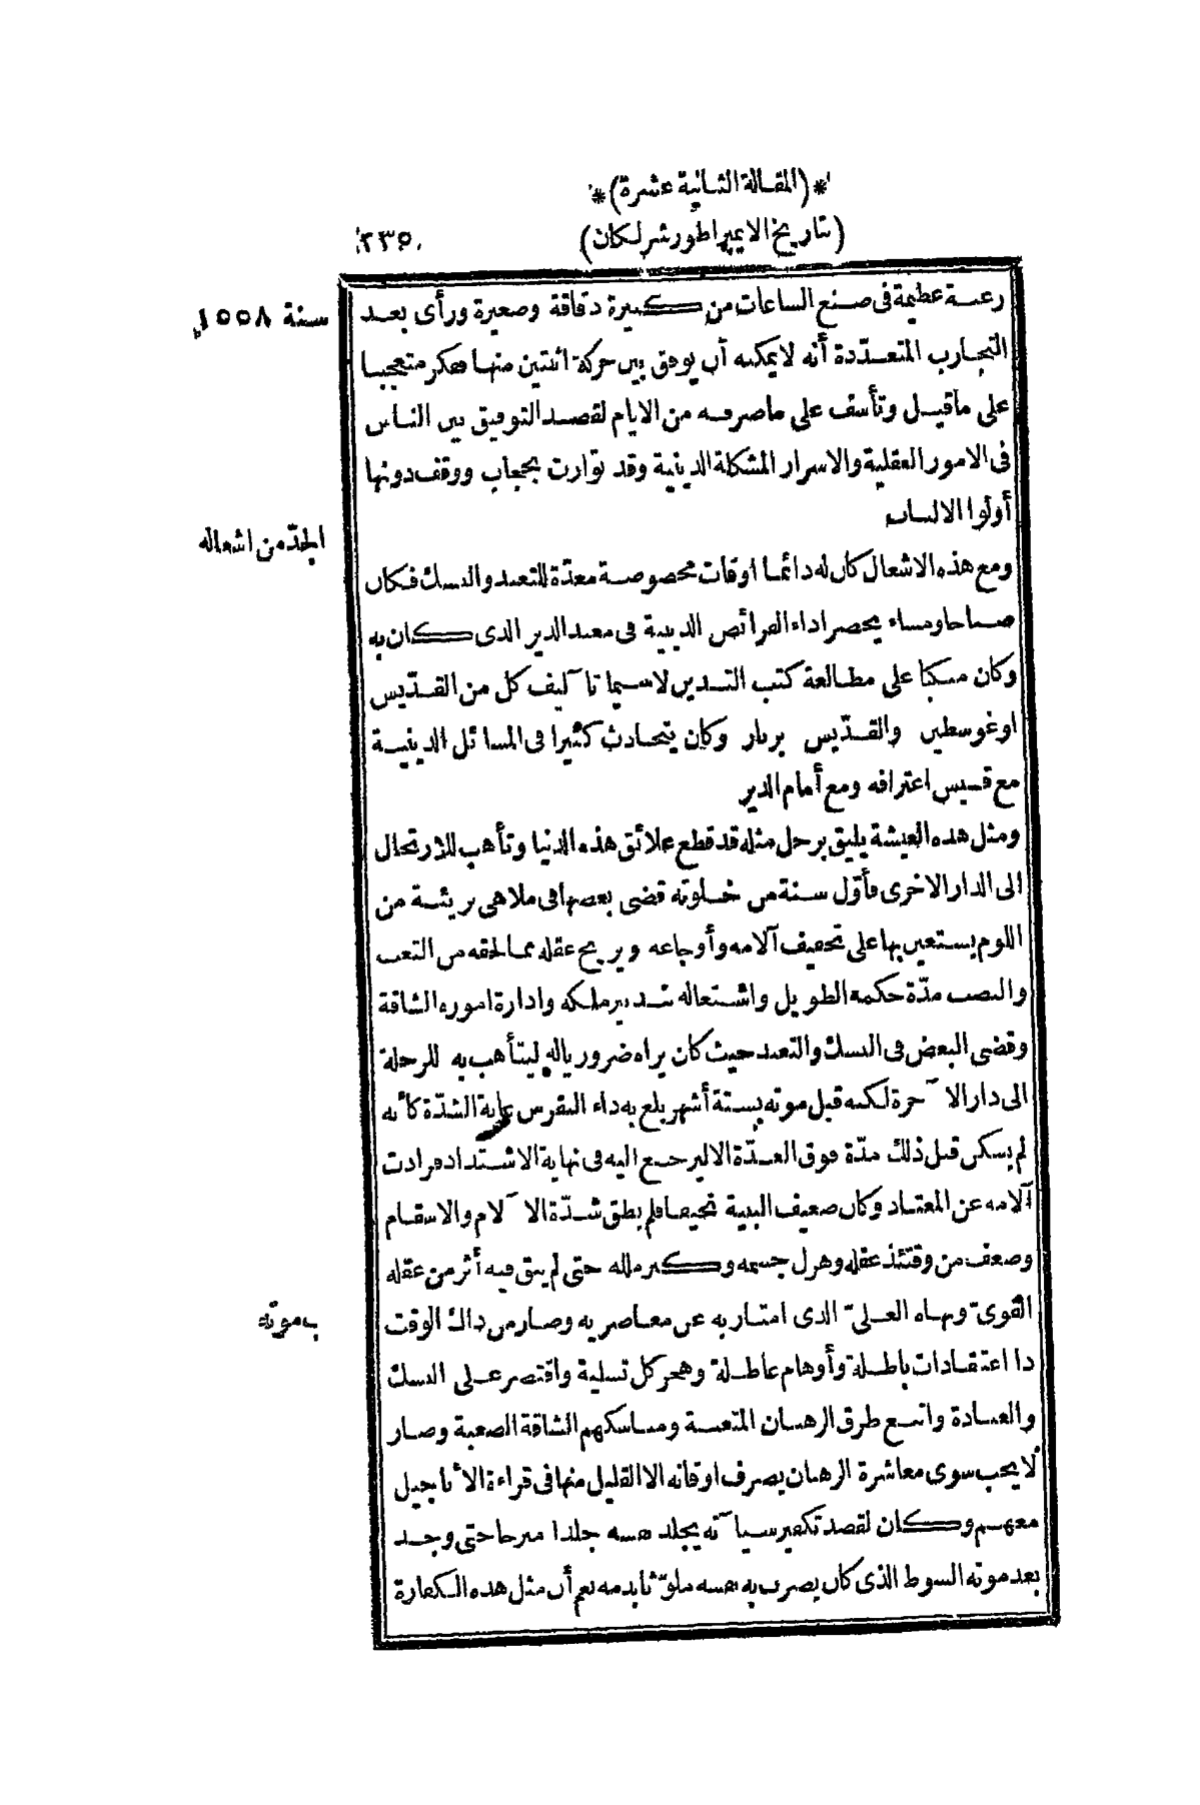 *(المقالة الثانية عشرة)*
(تاريخ الايمپراطور شرلكان)
٢٣٥
سنة ١٥٥٨
رغبة عظيمة فى صنع الساعات من كبيرة دقاقة وصغيرة ورأى بعد
التجارب المتعدّدة أنه لايمكنه أن يوفق بين حركة اثنتين منها ففكر متعجبا
على ماقيل وتأسف على ماصرفه من الايام لقصد التوفيق بين الناس
فى الامور العقلية والاسرار المشكلة الدينية وقد توارت بحجاب ووقف دونها
أولوا الالباب
الجدّ من اشغاله
ومع هذه الاشغال كان له دائما اوقات مخصوصة معدّة للتعبد والنسك فكان
صباحا ومساء يحضر اداء الفرائض الدينية فى معبد الدير الذى كان به
وكان مكبا على مطالعة كتب التدين لاسيما تآليف كل من القدّيس
اوغوسطين والقدّيس برنار وكان يتحادث كثيرا فى المسائل الدينية
مع قسيس اعترافه ومع أمام الدير
ومثل هذه العيشة يليق برجل مثله قد قطع علائق هذه الدنيا وتأهب للارتحال
الى الدار الاخرى فأوّل سنة من خلوته قضى بعضها فى ملاهى بريئة من
اللوم يستعين بها على تخفيف آلامه وأوجاعه ويريح عقله مما لحقه من التعب
والنصب مدّة حكمه الطويل واشتغاله بتدبير ملكه وادارة اموره الشاقة
وقضى البعض فى النسك والتعبد حيث كان يراه ضروريا له ليتأهب به للرحلة
الى دار الآخرة لكنه قبل موته بستة أشهر بلغ به داء النقرس غاية الشدّة كأنه
لم يسكن قبل ذلك مدّة فوق العدّة الا ليرجع اليه فى نهاية الاشتداد فزادت
آلامه عن المعتاد وكان ضعيف البنية نحيفا فلم يطق شدّة الآلام والاسقام
وضعف من وقتئذ عقله وهزل جسمه وكبر ملله حتى لم يبق فيه أثر من عقله
ب موته
القوىّ ونهاه العلىّ الذى امتاز به عن معاصريه وصار من ذاك الوقت
ذا اعتقادات باطلة وأوهام عاطلة وهجر كل تسلية واقتصر على النسك
والعبادة واتبع طرق الرهبان المتعبة ومناسكهم الشاقة الصعبة وصار
لا يحب سوى معاشرة الرهبان يصرف اوقاته الا القليل منها فى قراءة الأناجيل
معهم وكان لقصد تكفير سيآته يجلد نفسه جلدا مبرحا حتى وجد
بعد موته السوط الذى كان يضرب به نفسه ملوّثا بدمه نعم أن مثل هذه الكفارة